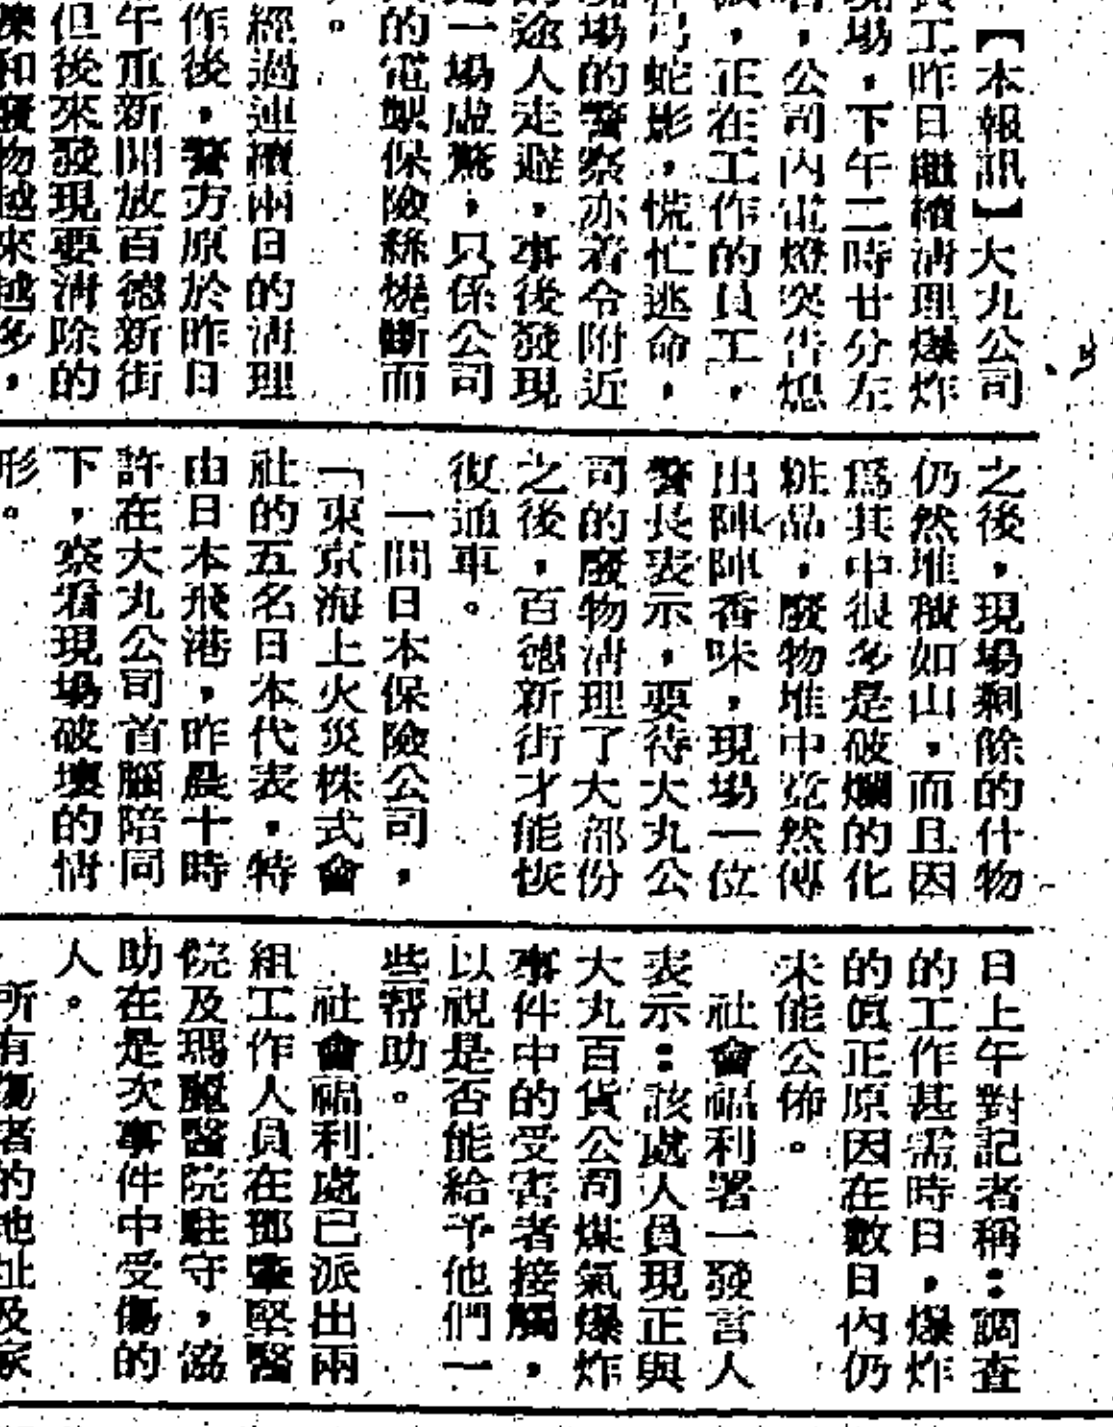 【本報訊】大丸公司
員工昨日繼續清理爆炸
現場,下午二時廿分左
,公司內電燈突告熄
,正在工作的員工,
弓蛇影,慌忙逃命,
場的警察亦着令附近
途人走避,事後發現
一場虛驚,只係公司
的電掣保險絲燒斷而
。
經過連續兩日的清理
作後,警方原於昨日
午重新開放百德新街
但後來發現要清除的
和廢物越來越多,
之後,現場剩餘的什物
仍然堆積如山,而且因
爲其中很多是破爛的化
粧品,廢物堆中竟然傳
出陣陣香味,現場一位
警長表示,要待大丸公
司的廢物清理了大部份
之後,百德新街才能恢
復通車。
一間日本保險公司,
「東京海上火災株式會
社的五名日本代表,特
由日本飛港,昨晨十時
許在大丸公司首腦陪同
下,察看現場破壞的情
形。
日上午對記者稱:調查
的工作甚需時日,爆炸
的眞正原因在數日內仍
未能公佈。
社會福利署一發言人
表示:該處人員現正與
大丸百貨公司煤氣爆炸
事件中的受害者接觸,
以視是否能給予他們一
些帮助。
社會福利處已派出兩
組工作人員在鄧肇堅醫
院及瑪麗醫院駐守,協
助在是次事件中受傷的
人。
所有傷者的地址及家